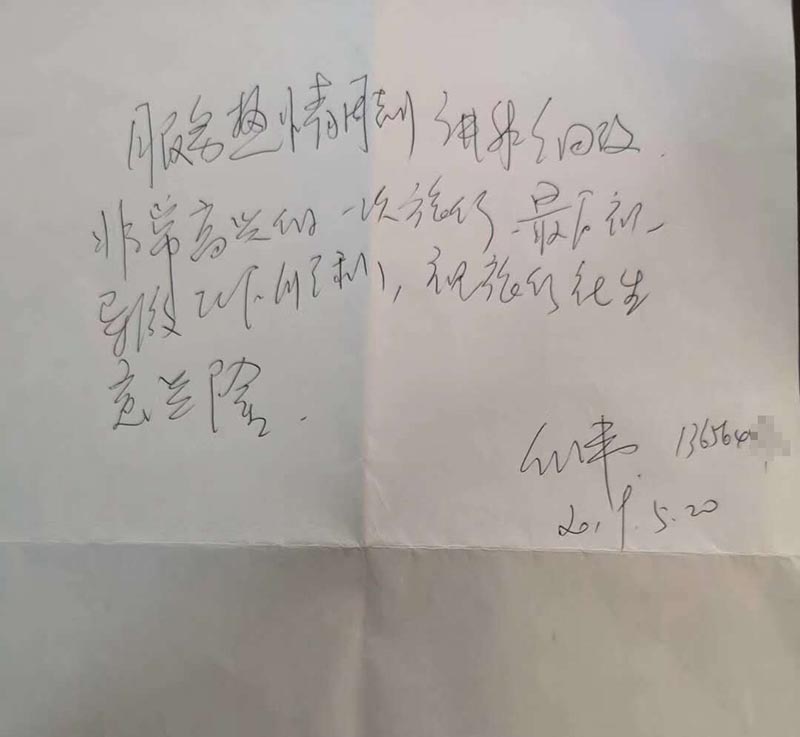 服务热情周到 讲求细致.
非常高兴的一次旅行.最后祝
导游工作顺利,祝旅行社生
意兴隆.
136564
2019.5.20